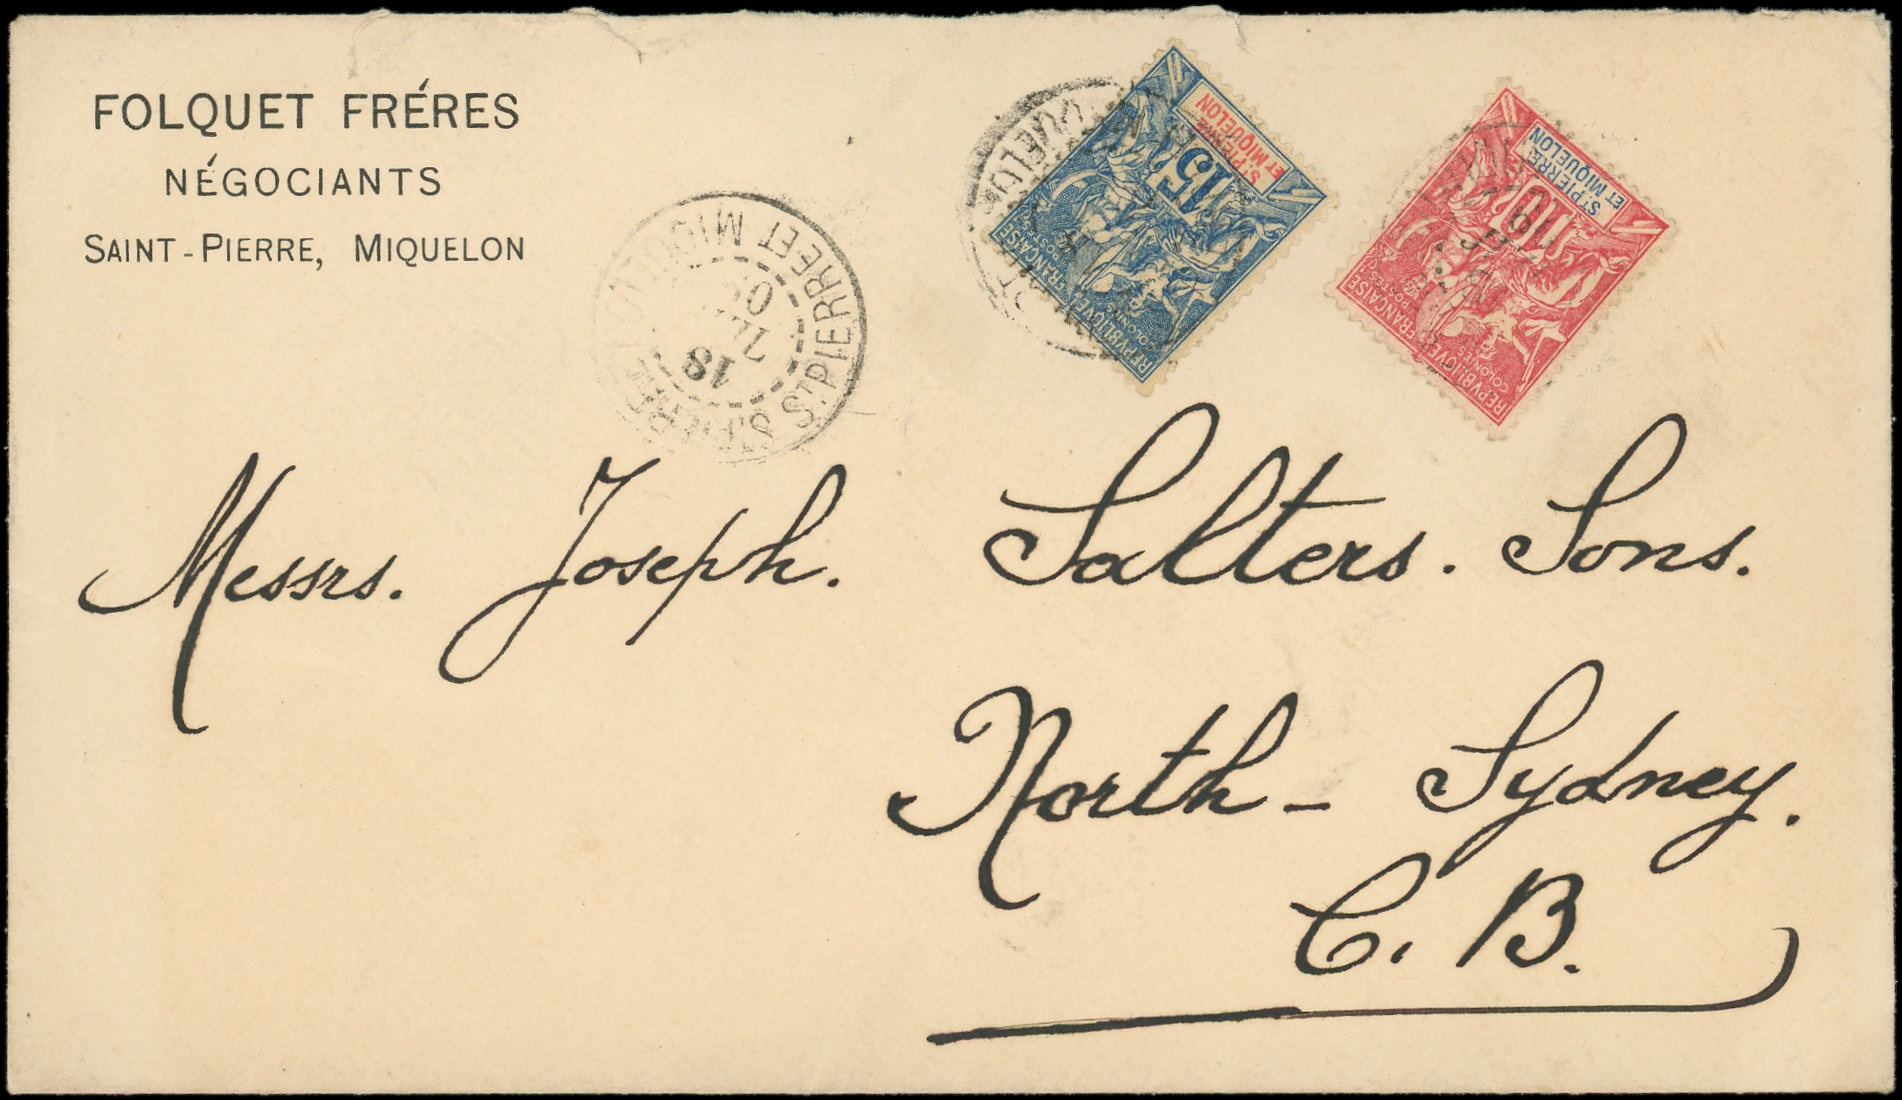 FOLQUET FRÉRES
NÉGOCIANTS
SAINT-PIERRE, MIQUELON
ST PIERRE ET MIQUELON
15
REPVBLIQVE FRANÇAISE
COLONIES
POSTES
ST PIERRE ET MIQUELON
10
REPVBLIQVE FRANÇAISE
COLONIES
POSTES
ST PIERRE ET MIQ
ST PIERRE
18
Messrs. Joseph. Salters. Sons.
North - Sydney.
C. B.